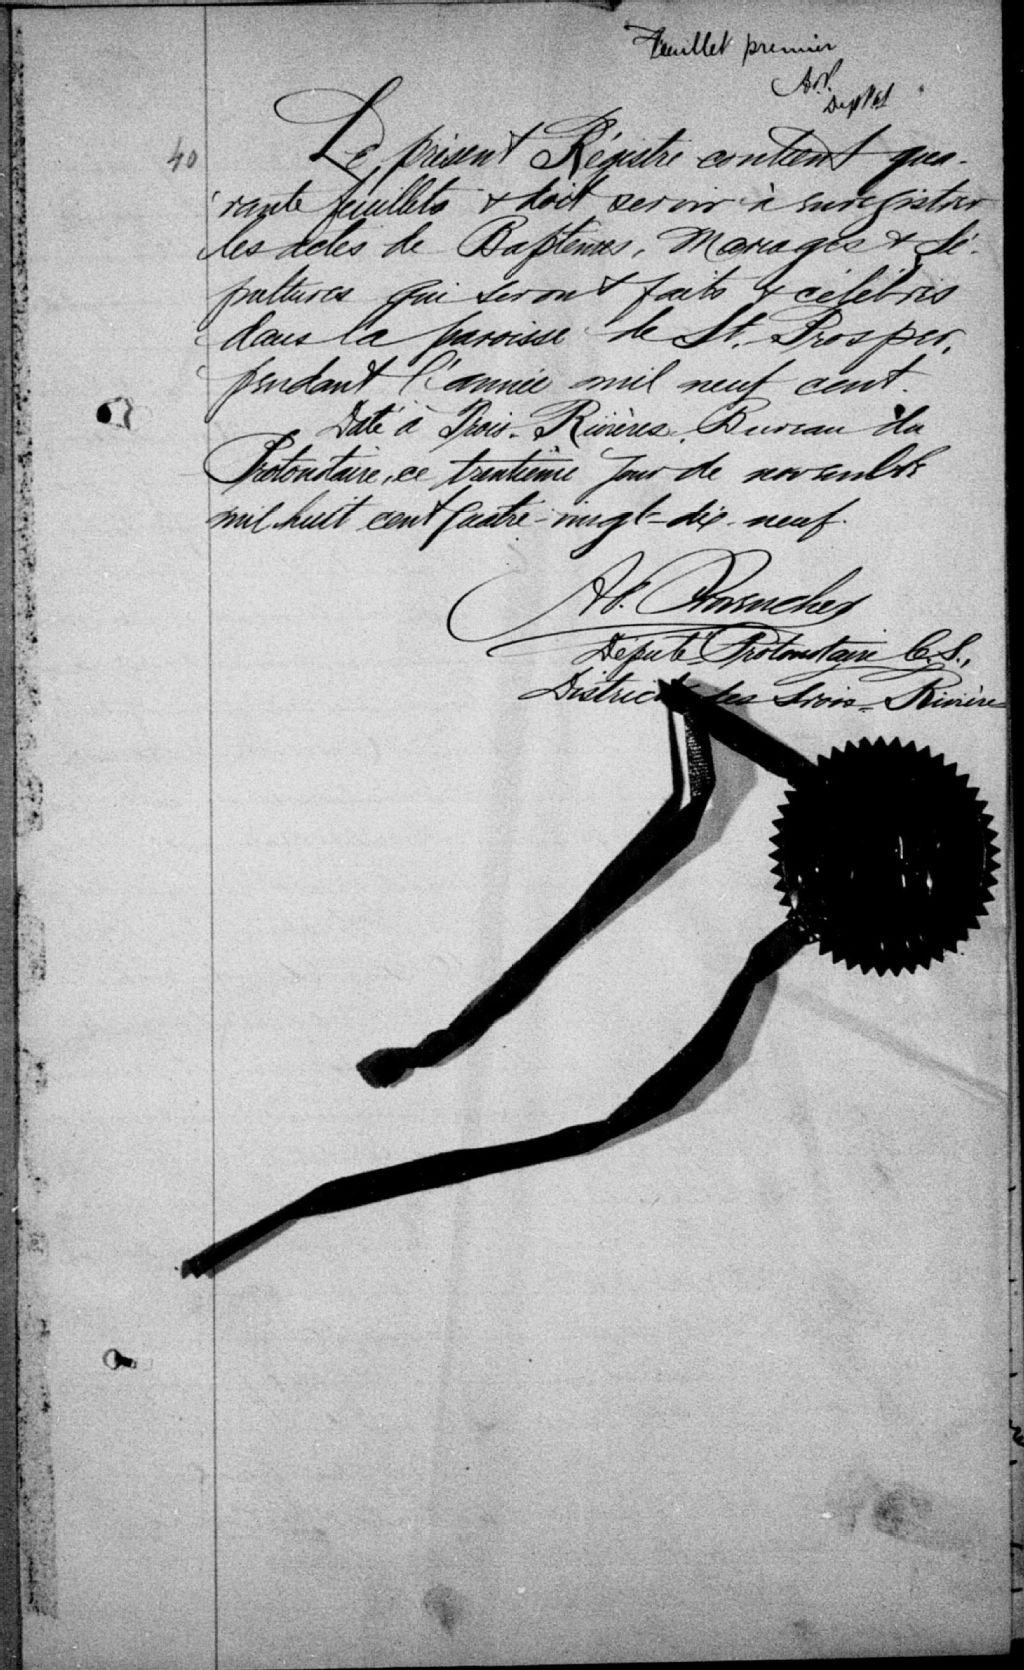 Feuillet premier
40
Le présent Régistre contient qua-
rante feuillets & doit servir à enregistrer
les actes de Baptêmes, Mariages & Sé-
pultures qui seront faits & célébrés
dans la paroisse de St. Prosper,
pendant l'année mil neuf cent.
Daté à Trois-Rivières, Bureau du
Protonotaire, ce trentième jour de novembre
mil huit cent quatre-vingt-dix-neuf.
Député Protonotaire C.S.,
District des Trois-Rivières